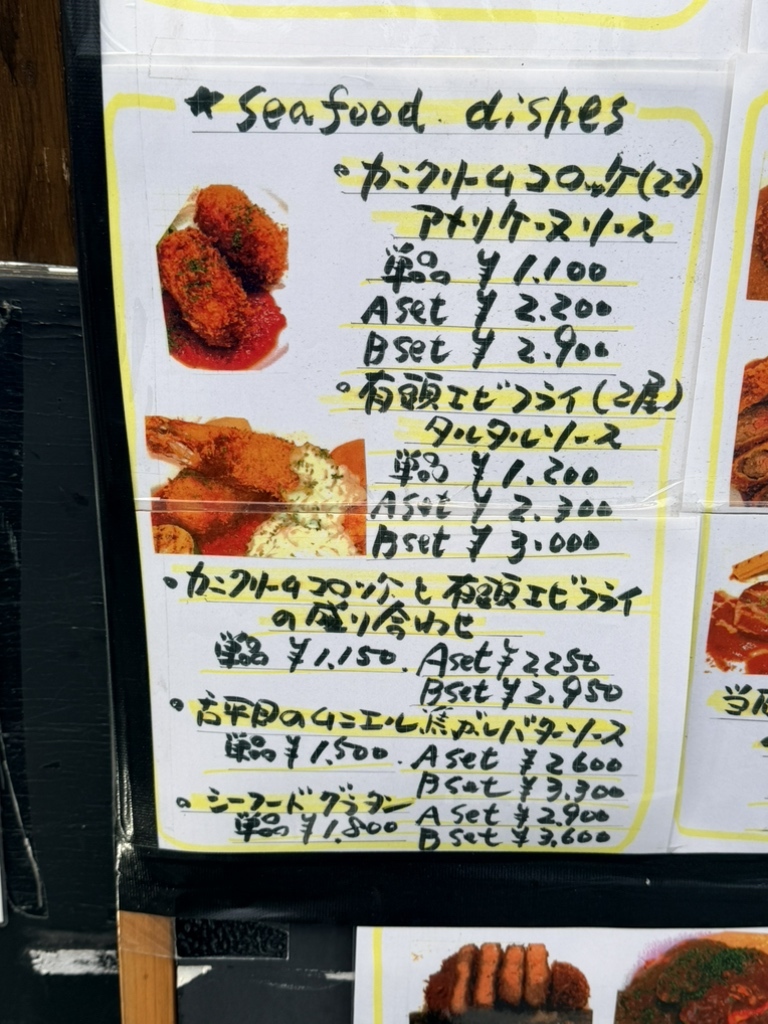 ★ Seafood dishes
・カニクリームコロッケ(2コ)
アメリケーヌソース
単品 ¥1.100
Aset ¥2.200
Bset ¥2.900
・有頭エビフライ(2尾)
タルタルソース
単品 ¥1.200
Aset ¥2.300
Bset ¥3.000
・カニクリームコロッケと有頭エビフライ
の盛り合わせ
単品 ¥1.150. Aset ¥2250
Bset ¥2.950
・舌平目のムニエル 焦がしバターソース
単品 ¥1,500. Aset ¥2600
Bset ¥3,300
・シーフードグラタン
単品 ¥1.800 Aset ¥2.900
Bset ¥3,600